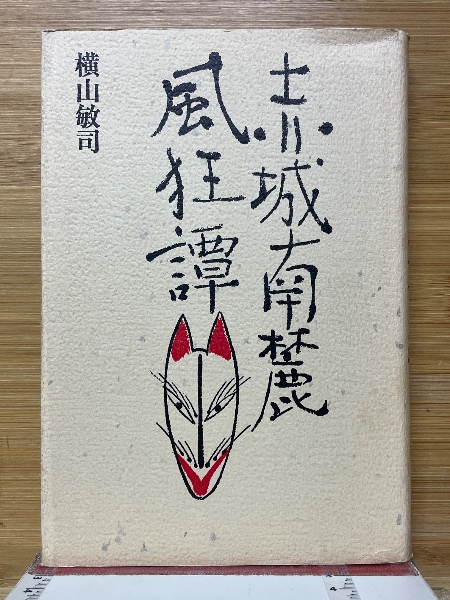 赤城南麓
風狂譚
横山敏司